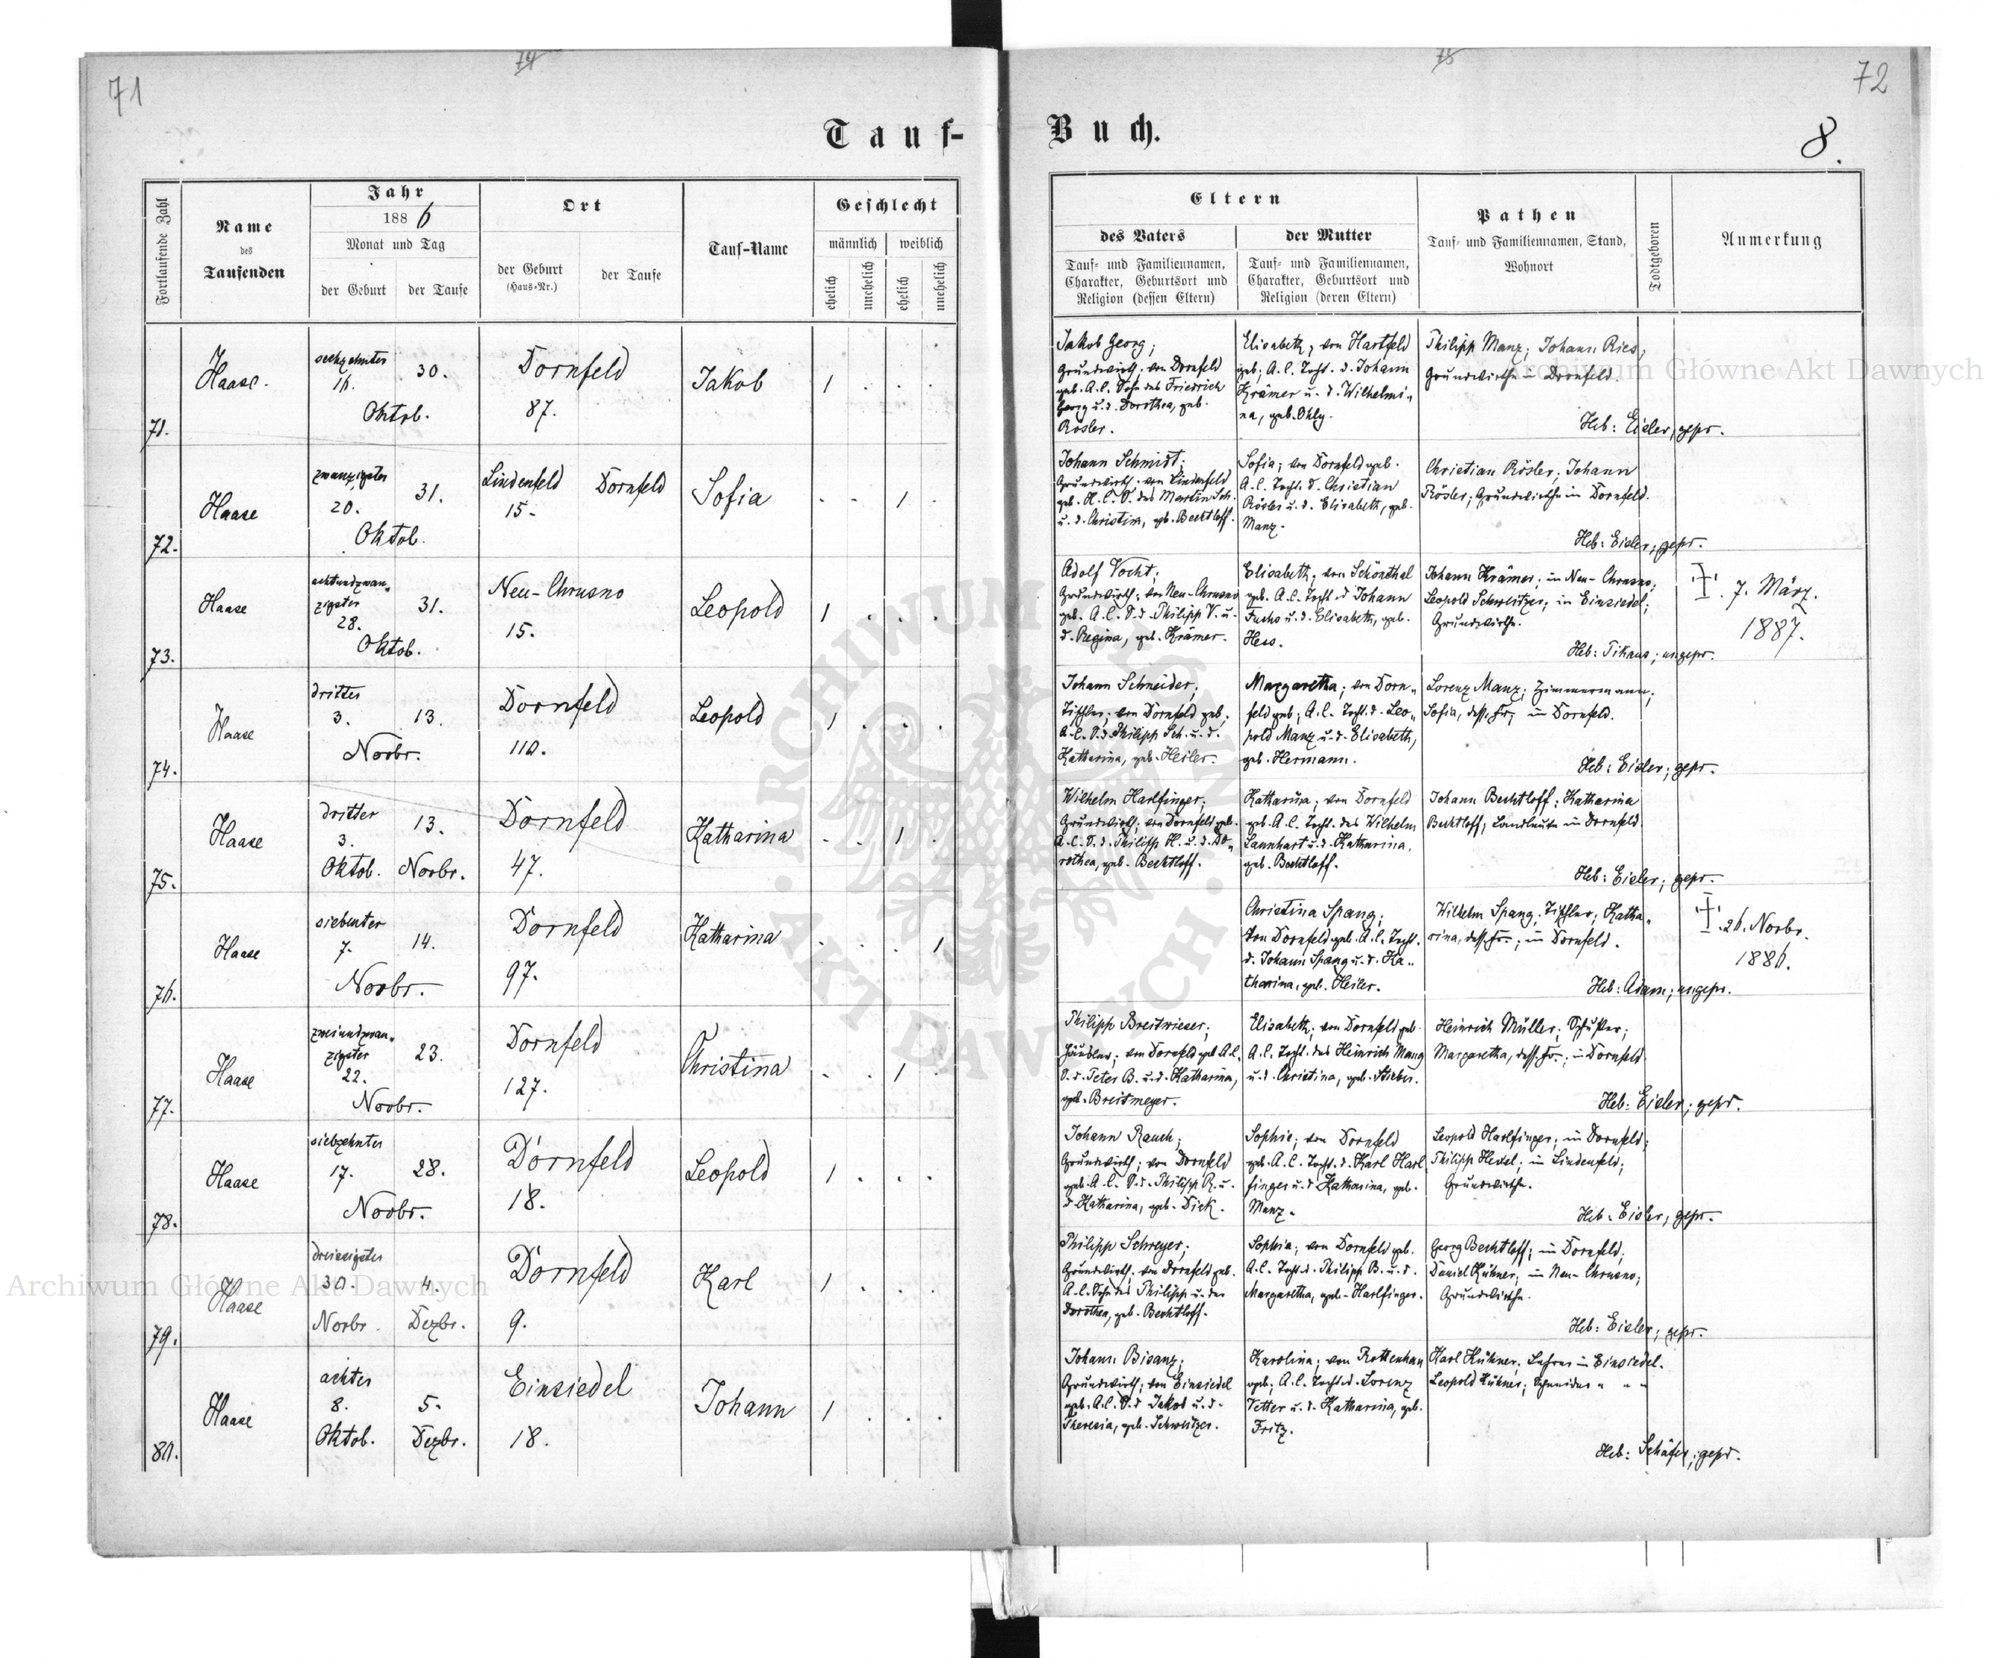 71
74
75
72
Tauf-
Buch.
8.
Fortlaufende Zahl
Name
des
Taufenden
Jahr
1886
Monat und Tag
der Geburt
der Taufe
Ort
der Geburt
(Haus-Nr.)
der Taufe
Tauf-Name
Geschlecht
männlich
weiblich
ehelich
unehelich
ehelich
unehelich
Eltern
des Vaters
Tauf- und Familiennamen,
Charakter, Geburtsort und
Religion (dessen Eltern)
der Mutter
Tauf- und Familiennamen,
Charakter, Geburtsort und
Religion (deren Eltern)
Pathen
Tauf- und Familiennamen, Stand,
Wohnort
Todtgeboren
Anmerkung
71.
Haase.
sechzehnter
16.
30.
Oktob.
Dornfeld
87.
Jakob
1 . . .
Jakob Georg;
Grundwirth; von Dornfeld
geb. A.C. Sohn des Friedrich
Georg u. d. Dorothea, geb.
Rösler.
Elisabeth, von Hartfeld
geb; A.C. Tocht. d. Johann
Krämer u. d. Wilhelmi„
na, geb. Ohly.
Philipp Manz; Johann Ries,
Grundwirthe in Dornfeld.
Heb: Eisler, gepr.
72.
Haase
zwanzigster
20.
31.
Oktob.
Lindenfeld
15.
Dornfeld
Sofia
. . 1 .
Johann Schmidt;
Grundwirth; von Lindenfeld
geb. A.C. S. des Martin Sch.
u. d. Christina, geb. Bechtloff.
Sofia; von Dornfeld geb.
A.C. Tocht. d. Christian
Rösler u. d. Elisabeth, geb.
Manz.
Christian Rösler; Johann
Rösler; Grundwirthe in Dornfeld.
Heb: Eisler; gepr.
73.
Haase
achtundzwan„
zigster
28.
31.
Oktob.
Neu-Chrusno
15.
Leopold
1 . . .
Adolf Vocht;
Grundwirth; von Neu-Chrusno
geb. A.C. S. d. Philipp V. u.
d. Regina, geb. Krämer.
Elisabeth; von Schönthal
geb. A.C. Tocht. d. Johann
Fuchs u. d. Elisabeth, geb.
Hess.
Johann Krämer; in Neu-Chrusno;
Leopold Schweitzer; in Einsiedel;
Grundwirthe.
Heb: Tikaus; ungepr.
†. 7. März.
1887.
74.
Haase
dritter
3.
13.
Novbr.
Dornfeld
110.
Leopold
1 . . .
Johann Schneider;
Tischler; von Dornfeld geb;
A.C. S. d. Philipp Sch. u. d.
Katharina, geb. Heiler.
Margaretha; von Dorn„
feld geb; A.C. Tocht. d. Leo„
pold Manz u. d. Elisabeth,
geb. Hermann.
Lorenz Manz; Zimmermann;
Sofia, dess. Fr; in Dornfeld.
Heb: Eisler; gepr.
75.
Haase
dritter
3.
13.
Oktob.
Novbr.
Dornfeld
47.
Katharina
. . 1 .
Wilhelm Harlfinger;
Grundwirth; von Dornfeld geb.
A.C. S. d. Philipp H. u. d. Do„
rothea, geb. Bechtloff.
Katharina; von Dornfeld
geb. A.C. Tocht. des Wilhelm
Launhart u. d. Katharina,
geb. Bechtloff.
Johann Bechtloff; Katharina
Bechtloff; Landleute in Dornfeld.
Heb: Eisler; gepr.
76.
Haase
siebenter
7.
14.
Novbr.
Dornfeld
97.
Katharina
. . . 1
Christina Spang;
von Dornfeld geb. A.C. Tocht.
d. Johann Spang u. d. Ka„
tharina, geb. Heiler.
Wilhelm Spang; Tischler; Katha„
rina, dess. Fr.; in Dornfeld.
Heb: Adam; ungepr.
†. 26. Novbr.
1886.
77.
Haase
zweiundzwan„
zigster
22.
23.
Novbr.
Dornfeld
127.
Christina
. . 1 .
Philipp Breitwieser;
Häusler; von Dornfeld geb. A.C.
S. d. Peter B. u. d. Katharina,
geb. Breitmeyer.
Elisabeth; von Dornfeld geb.
A.C. Tocht. des Heinrich Mang
u. d. Christina, geb. Stieber.
Heinrich Müller; Schuster;
Margaretha, dess. Fr.; in Dornfeld.
Heb: Eisler; gepr.
78.
Haase
siebzehnter
17.
28.
Novbr.
Dornfeld
18.
Leopold
1 . . .
Johann Rauch;
Grundwirth; von Dornfeld
geb. A.C. S. d. Philipp R. u.
d. Katharina, geb. Dick.
Sophie; von Dornfeld
geb. A.C. Tocht. d. Karl Harl
finger u. d. Katharina, geb.
Manz.
Leopold Harlfinger; in Dornfeld;
Philipp Hexel; in Lindenfeld;
Grundwirthe.
Heb: Eisler; gepr.
79.
Haase
dreissigster
30.
4.
Novbr.
Dezbr.
Dornfeld
9.
Karl
1 . . .
Philipp Schreyer;
Grundwirth; von Dornfeld geb.
A.C. Sohn des Philipp u. der
Dorothea, geb. Bechtloff.
Sophia; von Dornfeld geb.
A.C. Tocht. d. Philipp B. u. d.
Margaretha, geb. Harlfinger.
Georg Bechtloff; in Dornfeld;
Daniel Kühner; in Neu-Chrusno;
Grundwirthe.
Heb: Eisler; gepr.
80.
Haase
achter
8.
5.
Oktob.
Dezbr.
Einsiedel
18.
Johann
1 . . .
Johann Bisanz;
Grundwirth; von Einsiedel
geb. A.C. S. d. Jakob u. d.
Theresia, geb. Schweitzer.
Karolina; von Rottenhan
geb; A.C. Tocht. d. Lorenz
Tetter u. d. Katharina, geb.
Fritz.
Karl Kühner; Lehrer in Einsiedel.
Leopold Kühner; Schneider „ „ „
Heb: Schäfer; gepr.
Archiwum Główne Akt Dawnych
Archiwum Główne Akt Dawnych
ARCHIWUM GŁÓWNE AKT DAWNYCH